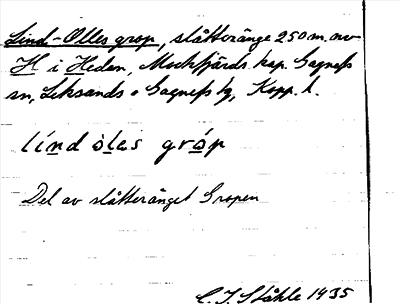 Lind-Olles grop, slåtteränge 250 m. nv
H i Heden, Mockfjärds kap. Gagnefs
sn, Leksands o Gagnefs tg, Kopp. l.
lind òles gróp
Del av slåtteränget Gropen
C. I. Ståhle 1935